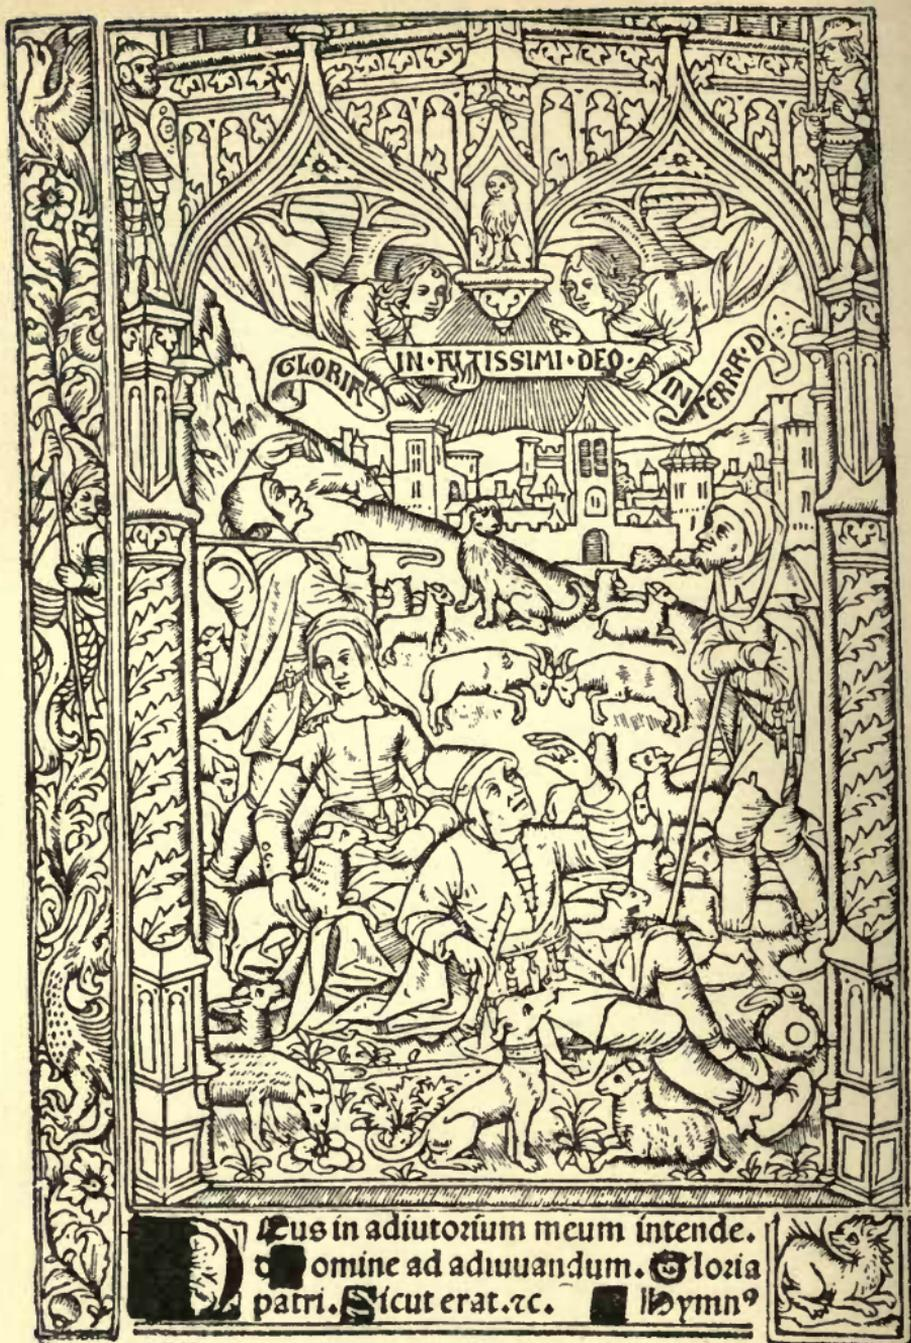 GLORIA IN·ALTISSIMI·DEO· IN TERRA·D
Deus in adiutorium meum intende.
domine ad adiuuandum. Gloria
patri. Sicut erat.⁊c. Hymnꝰ